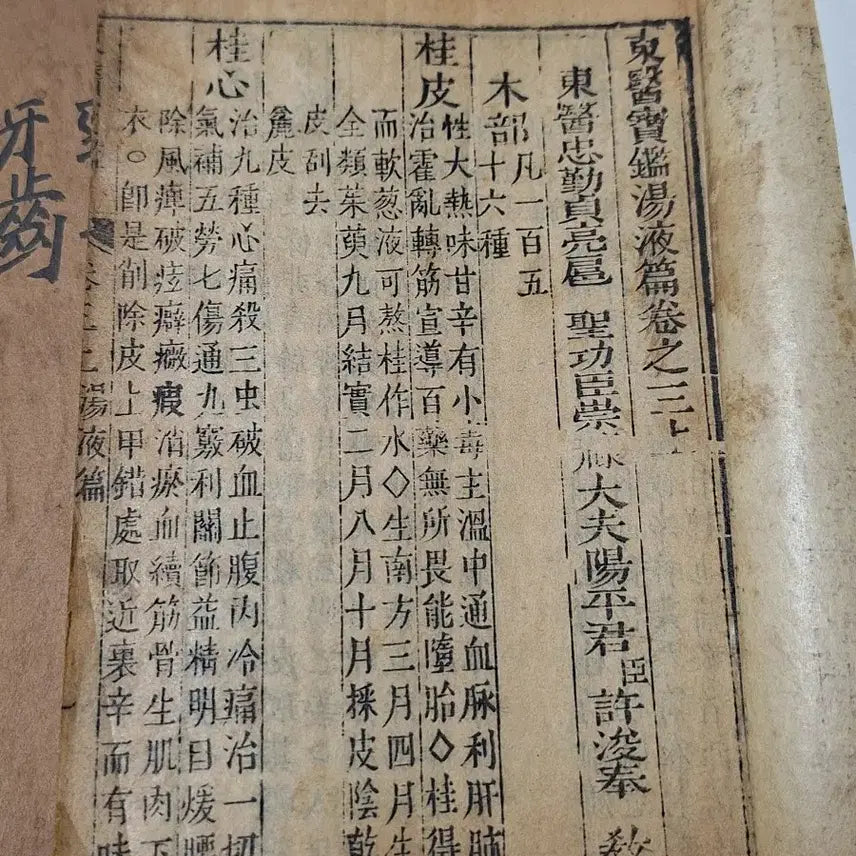 東醫寶鑑湯液篇卷之三
東醫忠勤貞亮扈 聖功臣崇祿大夫陽平君臣許浚奉 敎
木部 凡一百五
十六種
桂皮 性大熱味甘辛有小毒主溫中通血脉利肝肺
治霍亂轉筋宣導百藥無所畏能墮胎◇桂得
而軟葱液可熬桂作水◇生南方三月四月生
全類茱萸九月結實二月八月十月採皮陰乾
皮刮去
麁皮
桂心 治九種心痛殺三虫破血止腹內冷痛治一切
氣補五勞七傷通九竅利關節益精明目煖腰
除風痺破痃癖癥瘕消瘀血續筋骨生肌肉下
衣○卽是削除皮上甲錯處取近裏辛而有味
湯液篇
牙齒